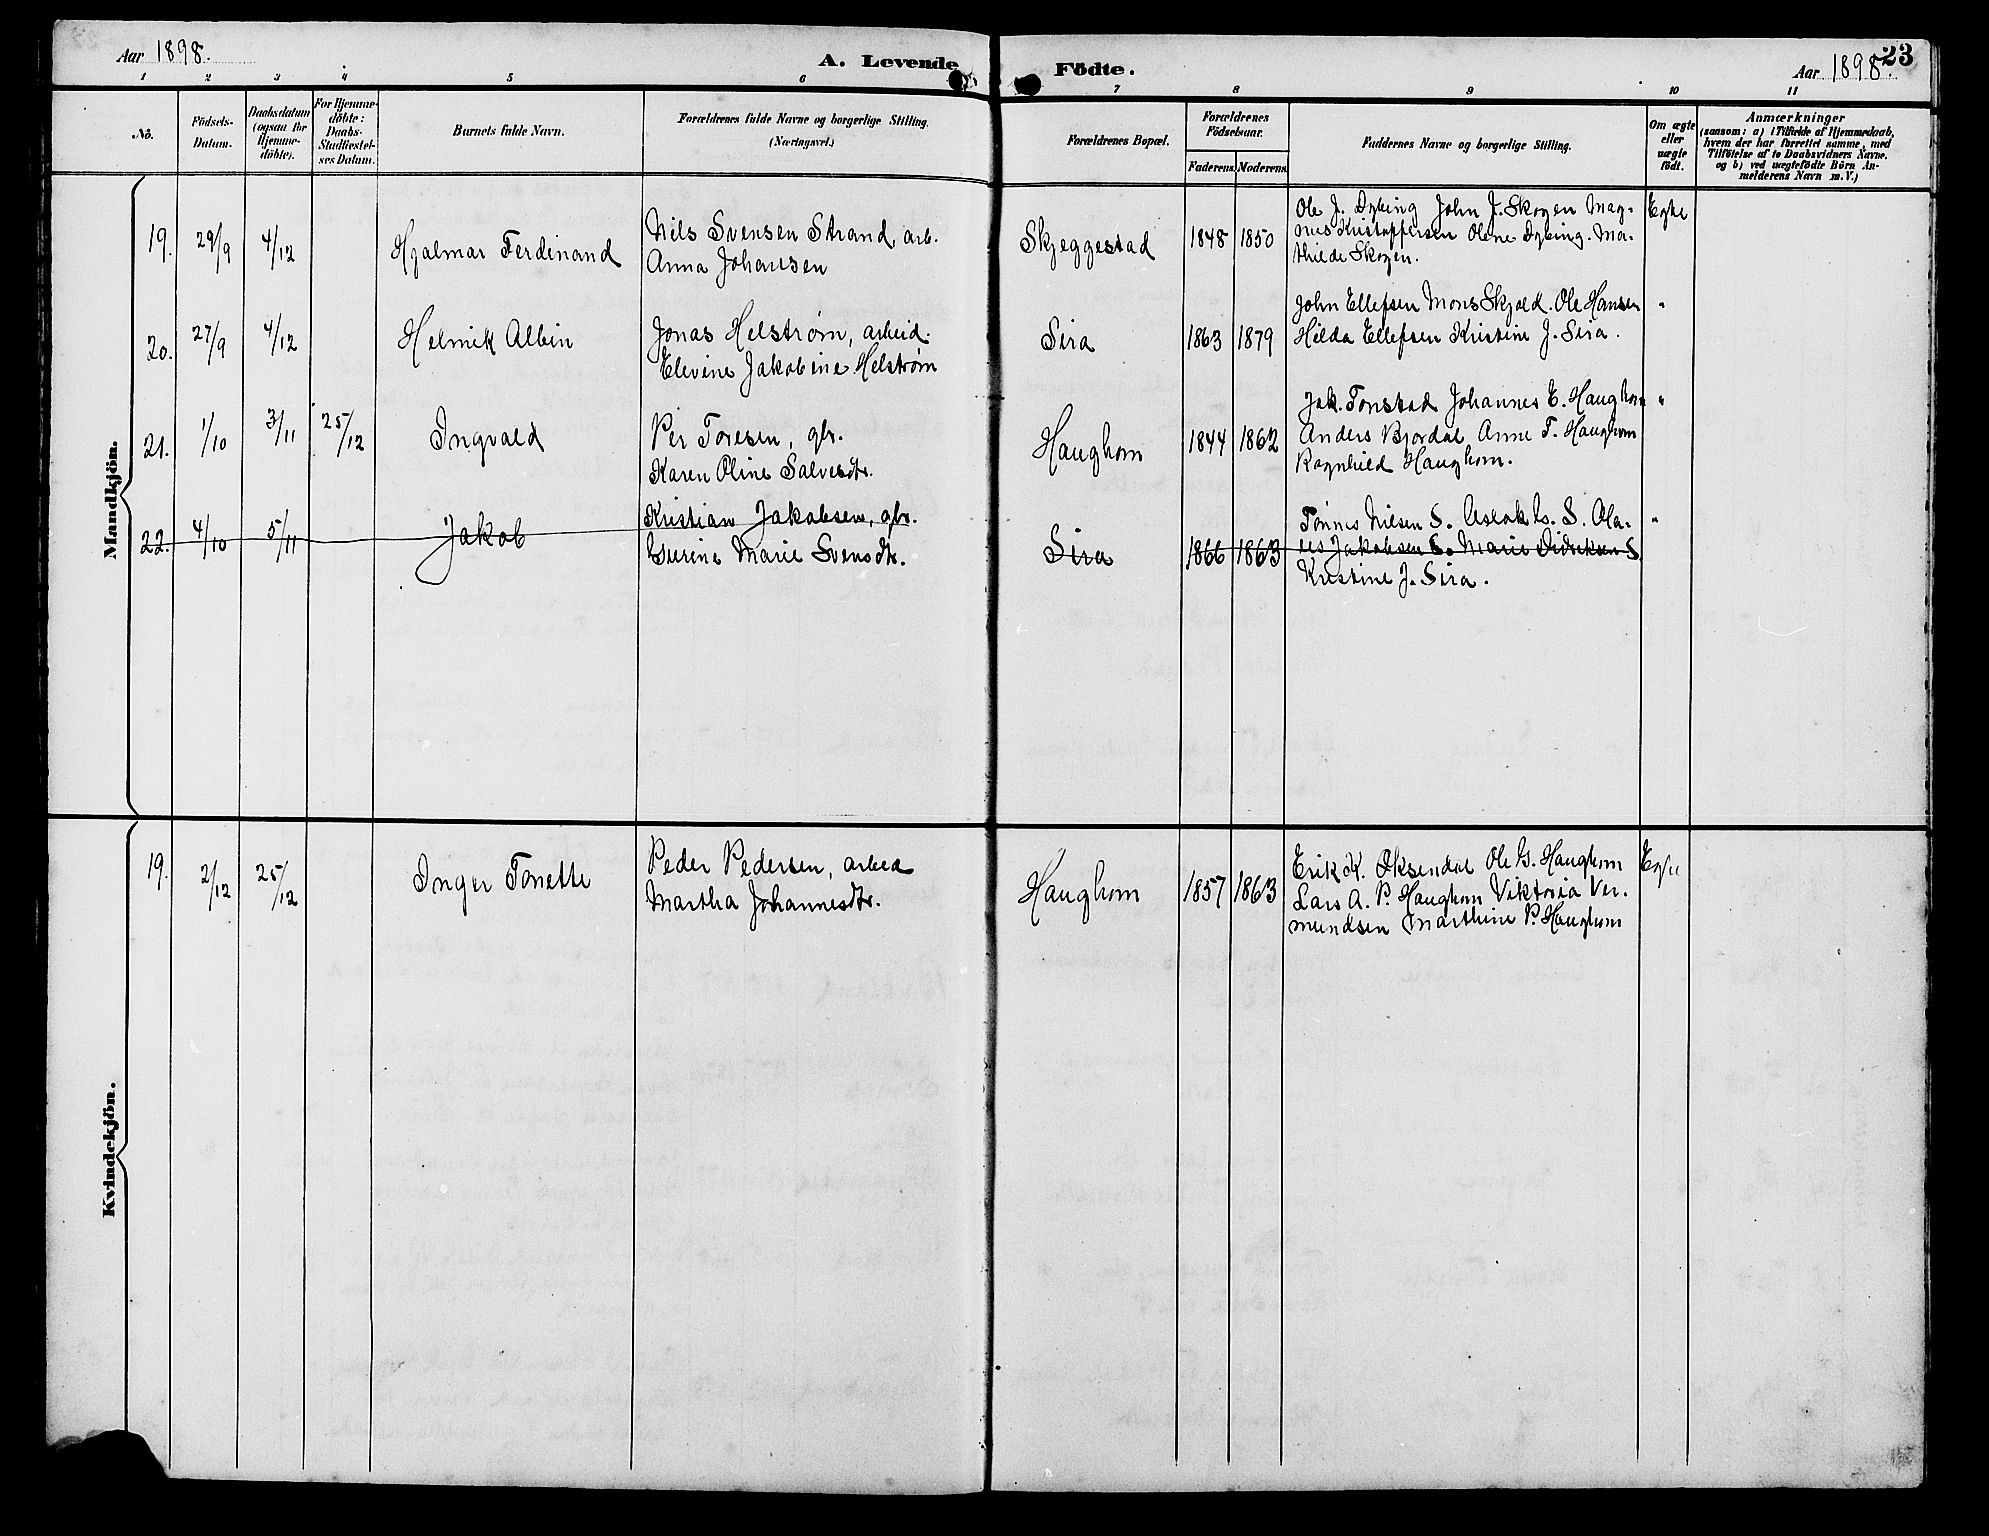 Aar 1898.
A. Levende
Födte.
Aar 1898.
23
1 2 3 4 5 6 7 8 9 10 11
Nô.
Födsels-
Datum.
Daabsdatum
(ogsaa for
Hjemme-
döbte).
For Hjemme-
döbte:
Daabs-
Stadfæstel-
ses Datum.
Barnets fulde Navn.
Forældrenes fulde Navne og borgerlige Stilling.
(Næringsvei.)
Forældrenes Bopæl.
Forældrenes
Födselsaar.
Faderens. Moderens.
Faddernes Navne og borgerlige Stilling.
Om ægte
eller
uægte
födt.
Anmærkninger
(saasom: a) i Tilfælde af Hjemmedaab,
hvem der har forrettet samme, med
Tilföielse af to Daabsvidners Navne.
og b) ved uægtefödte Börn An-
melderens Navn m. V.)
Mandkjön.
19. 29/9 4/12 Hjalmar Ferdinand
Nils Svensen Strand, arb.
Anna Johansen
Skjeggestad 1848 1850
Ole J. Dybing John J. Skogen Mag-
nus Kristoffersen Olene Dybing. Ma-
thilde Skogen.
Egte
20. 27/9 4/12 Helmik Albin
Jonas Helstrøm, arbeid.
Elevine Jakobine Helstrøm
Sira 1863 1879
John Ellefsen Mons Skjold. Ole Hansen
Hilda Ellefsen Kristine J. Sira.
"
21. 1/10 3/11 25/12 Ingvald
Per Toresen, gbr.
Karen Oline Salvesdtr.
Haughom 1844 1862
Jak. Tonstad Johannes E. Haughom
Anders Bjordal Anne T. Haughom
Ragnhild Haughom.
"
22. 4/10 5/11 Jakob
Kristian Jakobsen, gbr.
Marie Svensdtr.
Sira 1866 1863
Tønnes Nilsen S. Aslak S. Ola-
us Jakobsen S. Marie Didriksen S.
Kristine J. Sira.
"
Kvindekjön.
19. 2/12 25/12 Inger Tonette
Peder Pedersen, arbeid
Martha Johannesdtr.
Haughom 1857 1863
Erik K. Øksendal Ole G. Haughom
Lars A. P. Haughom Viktoria Ver-
mundsen Marthine P. Haughom
Egte